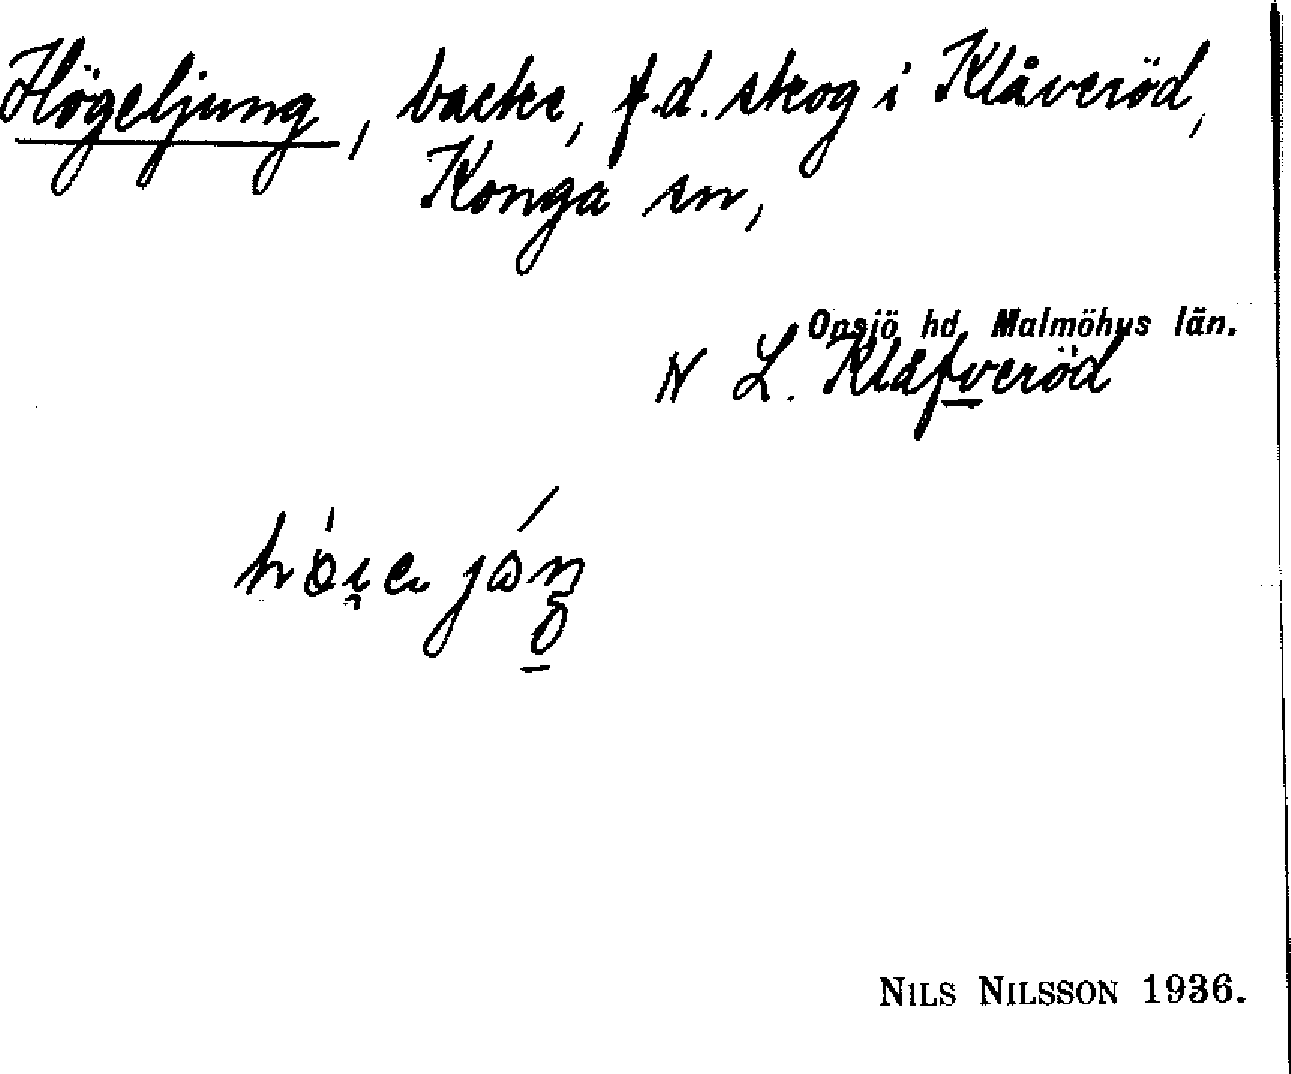 Högeljung, backe, f.d. skog i Klåveröd,
Konga sn,
Onsjö hd, Malmöhus län.
N L. Klåfveröd
NILS NILSSON 1936.